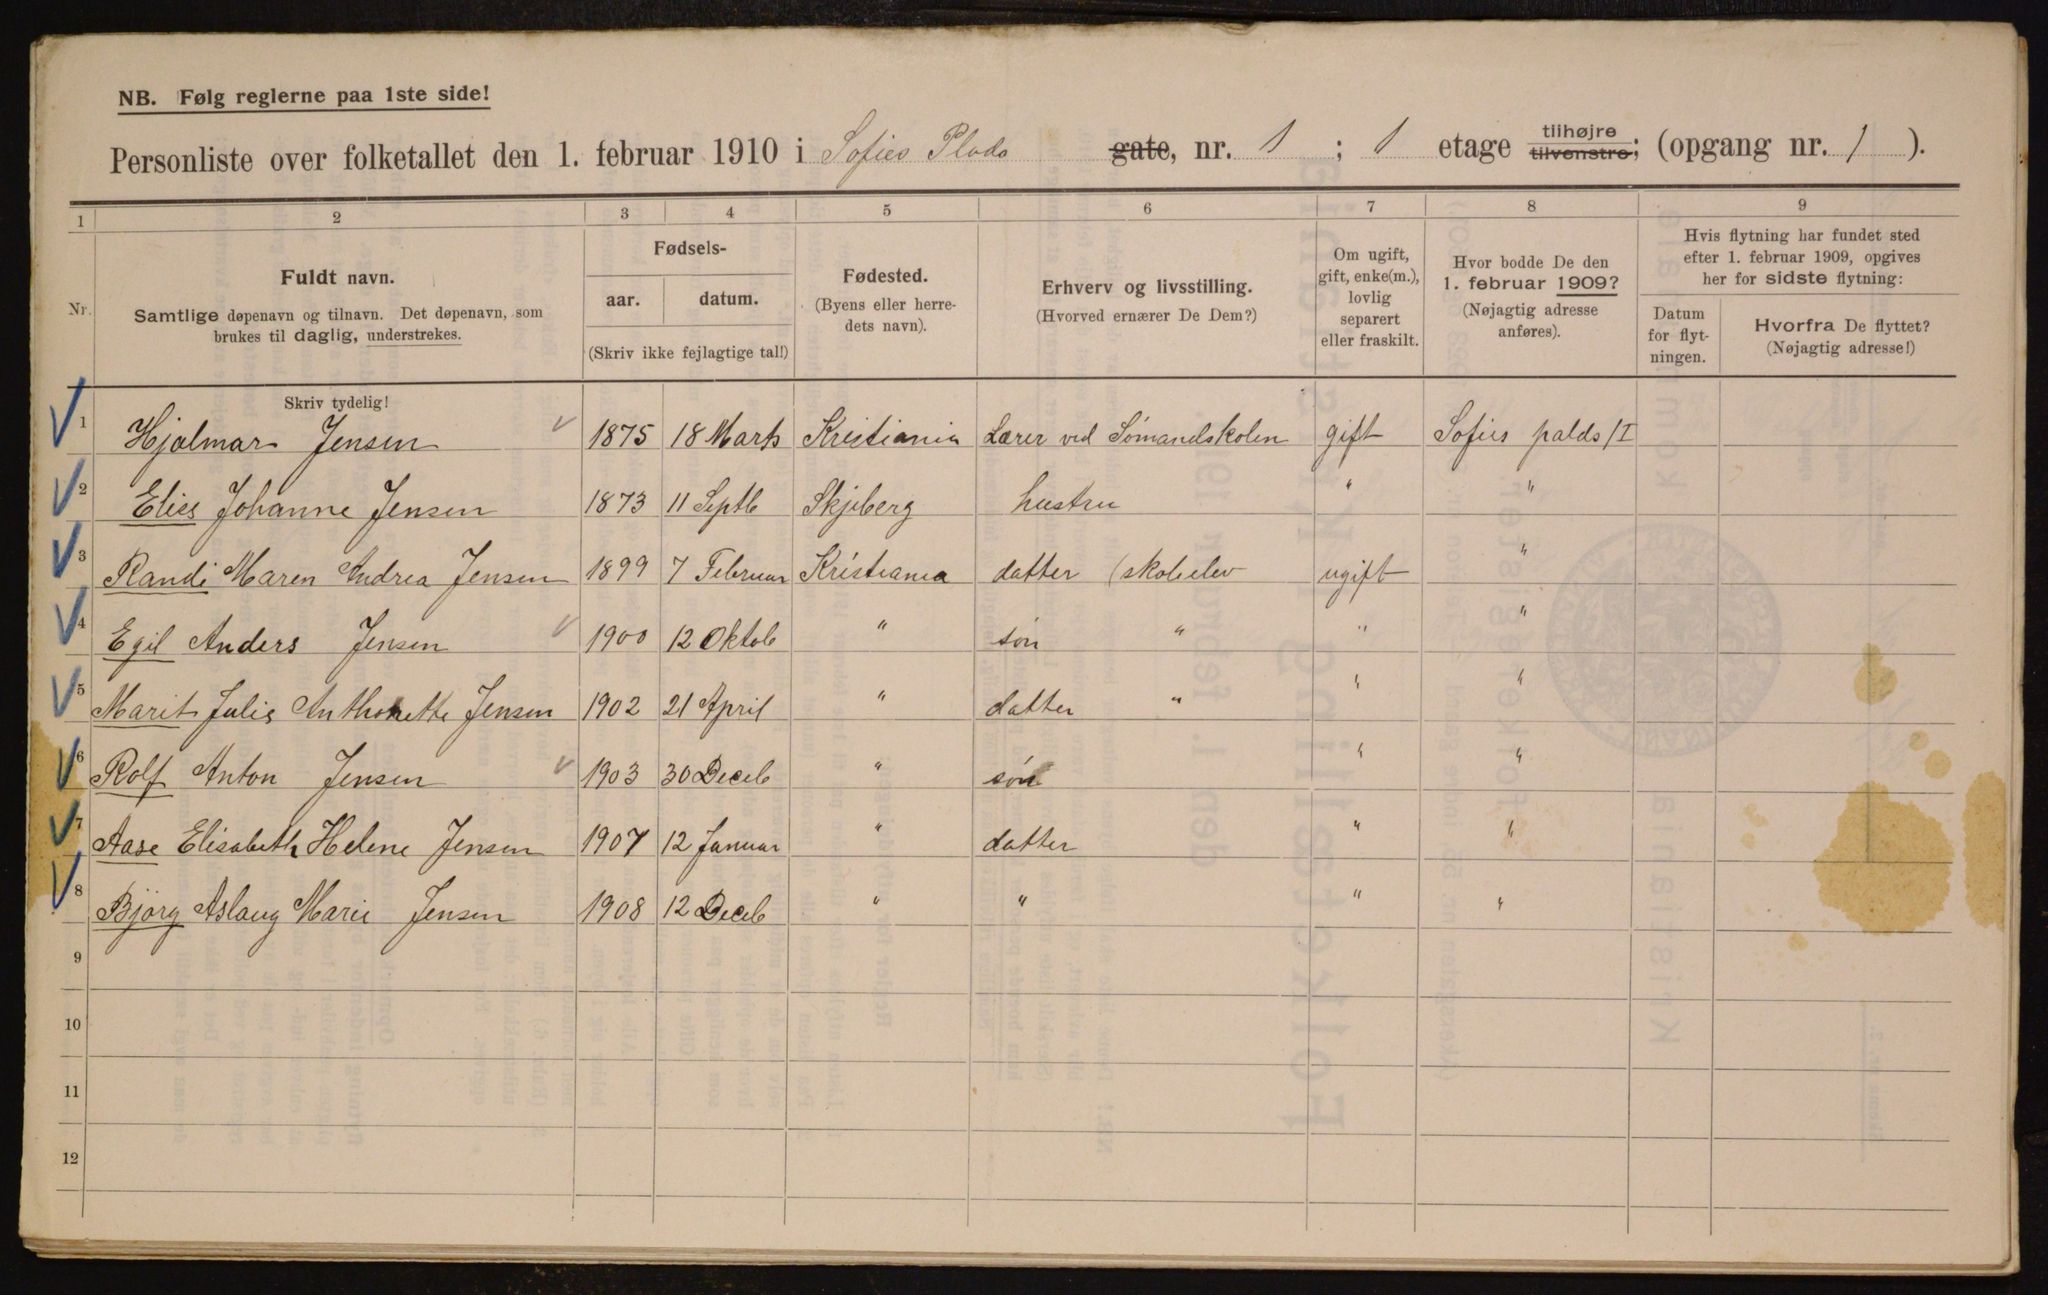 NB. Følg reglerne paa 1ste side!
Personliste over folketallet den 1. februar 1910 i Sofies Plads gate, nr. 1 ; 1 etage tilhøjre tilvenstre; (opgang nr. 1 ).
1 2 3 4 5 6 7 8 9
Nr.
Fuldt navn.
Samtlige døpenavn og tilnavn. Det døpenavn, som
brukes til daglig, understrekes.
Skriv tydelig!
Fødsels-
aar. datum.
(Skriv ikke fejlagtige tal!)
Fødested.
(Byens eller herre-
dets navn).
Erhverv og livsstilling.
(Hvorved ernærer De Dem?)
Om ugift,
gift, enke(m.),
lovlig
separert
eller fraskilt.
Hvor bodde De den
1. februar 1909?
(Nøjagtig adresse
anføres).
Hvis flytning har fundet sted
efter 1. februar 1909, opgives
her for sidste flytning:
Datum
for flyt-
ningen.
Hvorfra De flyttet?
(Nøjagtig adresse!)
1 Hjalmar Jensen 1875 18 Marts Kristiania Lærer ved Sømandskolen gift Sofies palds 1I
2 Elise Johanne Jensen 1873 11 Septb Skjeberg hustru " "
3 Randi Maren Andrea Jensen 1899 7 Februar Kristiania datter (skoleelev ugift "
4 Egil Anders Jensen 1900 12 Oktob " søn " " "
5 Marit Julie Anthonette Jensen 1902 21 April " datter " " "
6 Rolf Anton Jensen 1903 30 Deceb " søn " "
7 Aase Elisabeth Helene Jensen 1907 12 Januar " datter " "
8 Bjørg Aslaug Marie Jensen 1908 12 Deceb " " " "
9
10
11
12